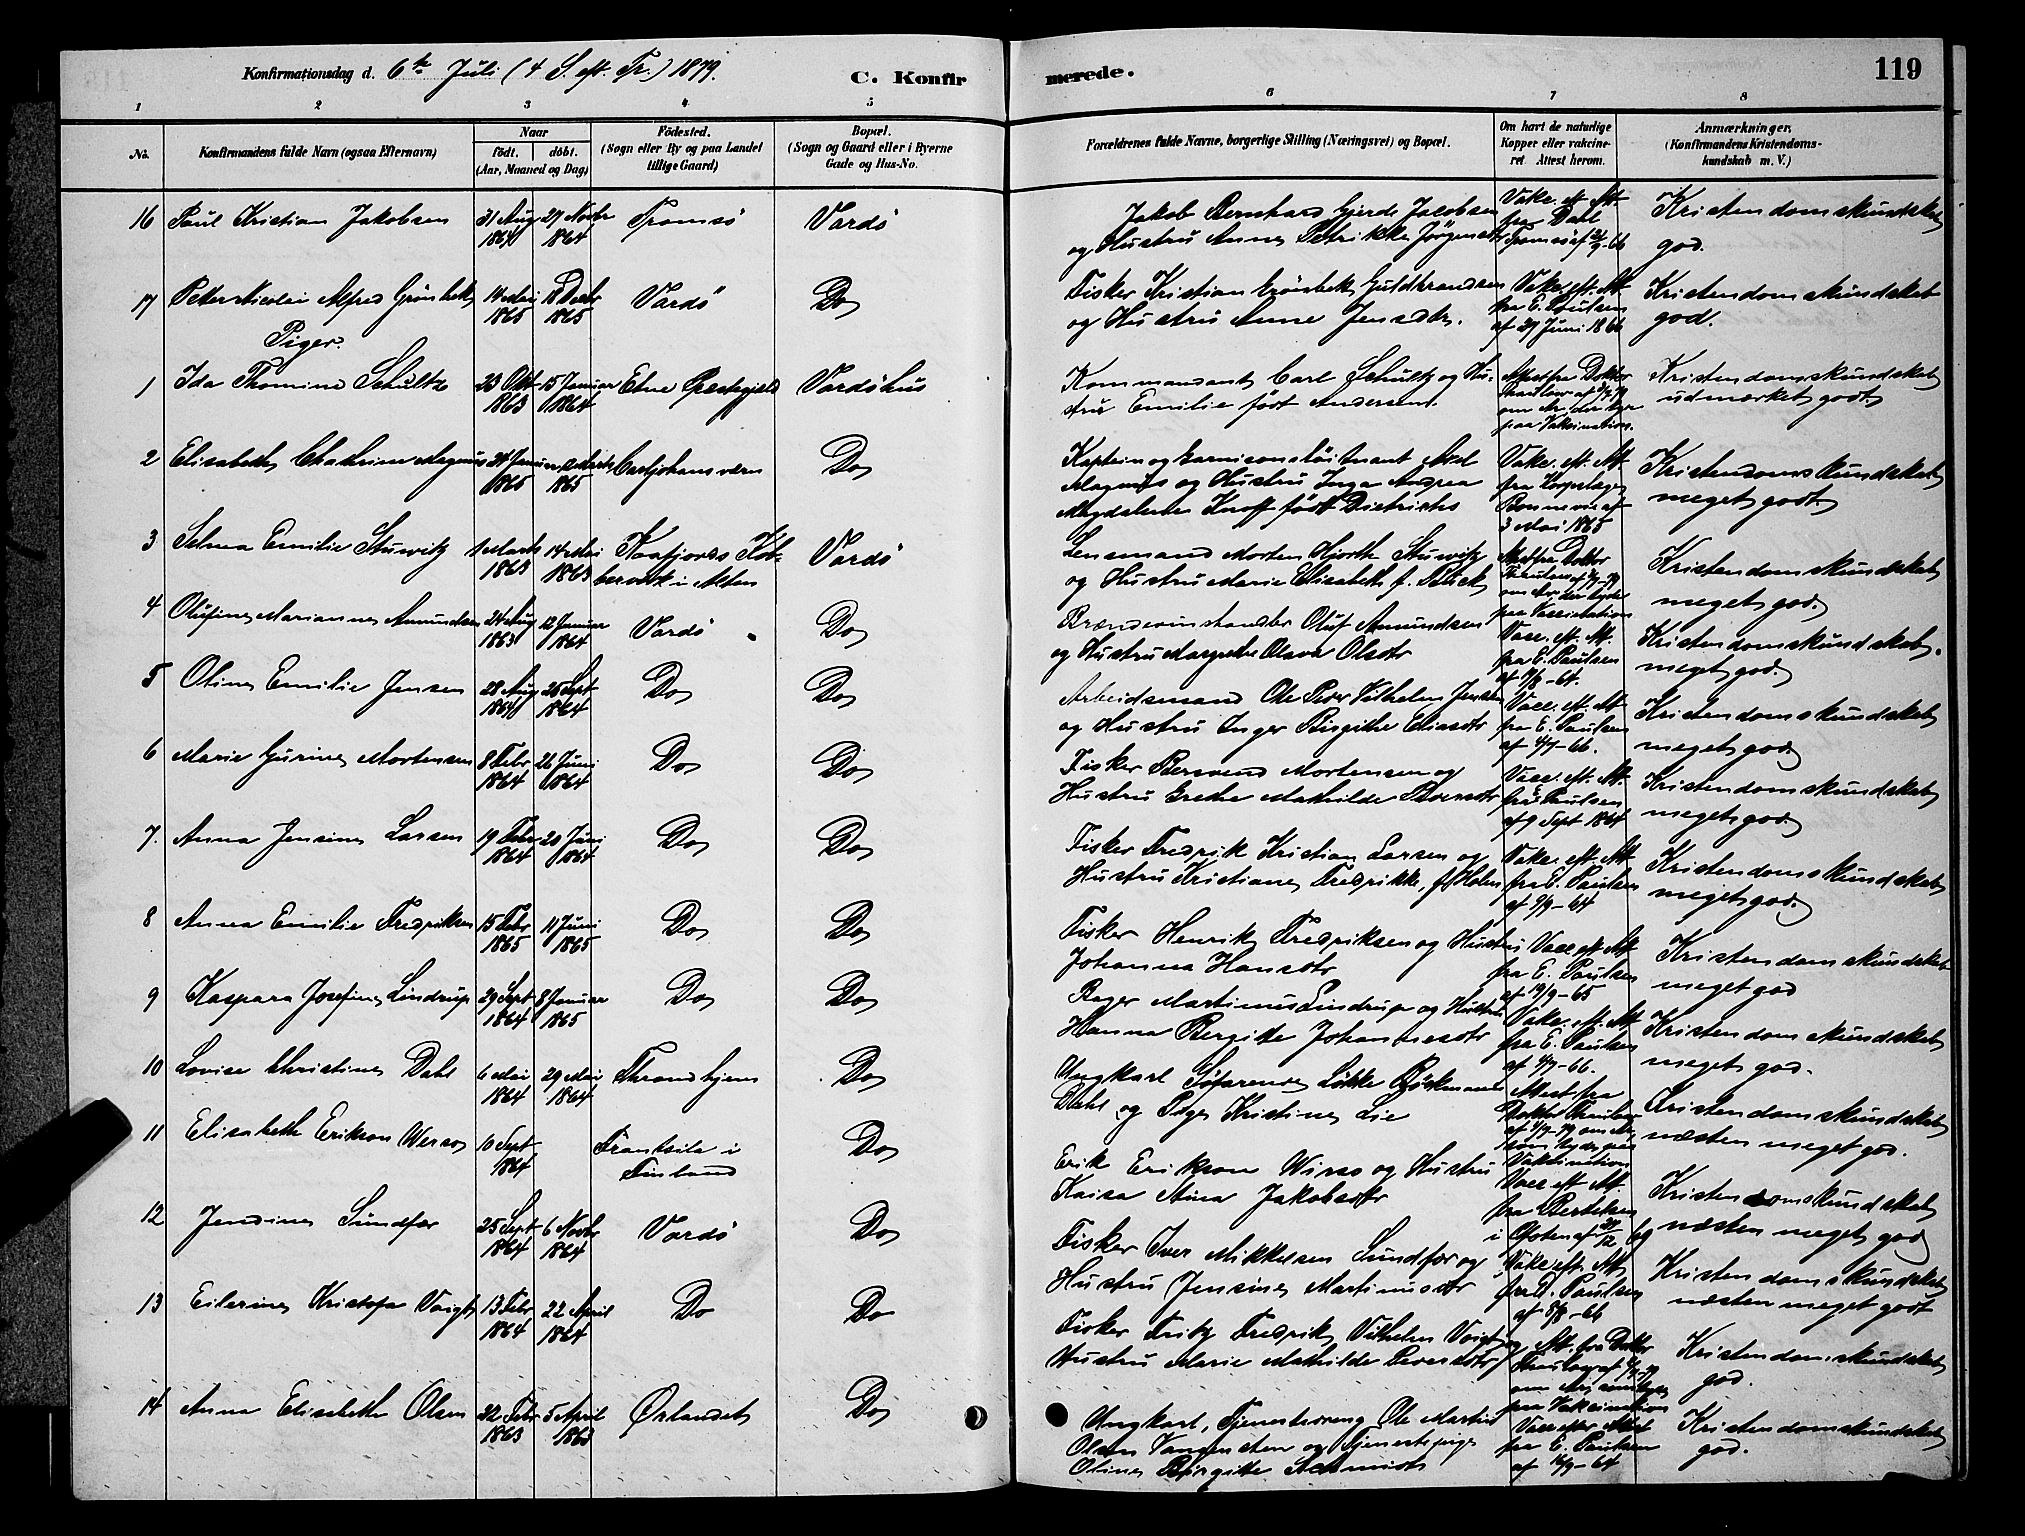 Konfirmationsdag d. 6te Juli (4 S. eft. Tr.) 1879.
C. Konfirmerede.
119
1 2 3 4 5 6 7 8
No.
Konfirmandens fulde Navn (ogsaa Efternavn)
Naar
født. døbt.
(Aar, Maaned og Dag)
Fødested.
(Sogn eller By og paa Landet
tillige Gaard)
Bopæl.
(Sogn og Gaard eller i Byerne
Gade og Hus-No.
Forældrenes fulde Navne, borgerlige Stilling (Næringsvei) og Bopæl.
Om havt de naturlige
Kopper eller vakcine-
ret. Attest herom.
Anmærkninger.
(Konfirmandens Kristendoms-
kundskab m. V.)
16 Paul Kristian Jakobsen 31 Aug 1864 27 Novbr 1864 Tromsö Vardö
Jakob Bernhard Gjerde Jacobsen
og Hustru Anne Petrikke Jörgensdtr
Vakc. eft. Att.
fra Dahl
Kristendomskundskab
god.
17 Peter Nicolai Alfred Grönbek 14 Mai 1865 Decbr 1865 Vardö Do
Fisker Kristian Grönbek Guldbrandsen
og Hustru Anne Jensdtr.
Vakc. eft. Att
fra E. Paulsen
af 27 Juni 1866
Kristendomskundskab
god.
Piger.
1 Ida Thomine Schultz 23 Okt 1863 15 Januar 1864 Etne Prestegjeld Vardöhus
Kommandant Carl Schultz og Hu-
stru Emilie född Andersen.
Attest fra Doktor
om Ar, der tyder
paa Vaksination.
Kristendomskundskab
udmærket godt
2 Elisabeth Chatrine Magnus 24 Januar 1865 Marts 1865 Carljohansværn Do
Kaptein og Garnisonslöitnant Axel
Magnus og Hustru Inga Andrea
Magdalena Knoff född Dietrichs
Vakc. eft. Att.
fra Korpslæge
Bonnevie af
3 Mai 1865
Kristendomskundskab
meget godt
3 Selma Emilie Stuwitz 1 Marts 1863 14 Mai 1863 Kaafjords Kob-
berverk i Alten Vardö
Lensmand Morten Hjorth Stuwitz
og Hustru Marie Elisabeth f. Buck
Attest fra Doktor
om Ar, der tyder
paa Vaccination
Kristendomskundskab
meget god.
4 Olufine Marianne Amundsen 24 Aug 1863 12 Januar 1864 Vardö Do
Brændevinshandler Oluf Amundsen
og Hustru Margrethe Olava Olsdtr
Vacc. eft. Att.
fra E. Paulsen
af 9/9-64.
Kristendomskundskab.
meget god.
5 Oline Emilie Jensen 28 Aug 1864 25 Sept 1864 Do Do
Arbeidsmand Ole Peter Vilhelm Jensen
og Hustru Inger Birgithe Eliasdtr
Vacc. eft. Att
fra E. Paulsen
af 4/7-66.
Kristendomskundskab
meget god
6 Marie Gurine Mortensen 8 Febr 1864 26 Juni 1864 Do Do
Fisker Bersvend Mortensen og
Hustru Grethe Mathilde Petersdtr
Vacc. eft. Att.
fra E. Paulsen
af 9 Sept 1864
Kristendomskundskab
meget god
7. Anna Jensine Larsen 19 Febr 1864 20 Juni 1864 Do Do
Fisker Fredrik Kristian Larsen og
Hustru Kristiane Fredrikke, f. Holm
Vakc. eft. Att
fra E. Paulsen
af 9/9-64
Kristendomskundskab
meget god.
8 Anna Emilie Fredriksen 15 Febr 1865 11 Juni 1865 Do Do
Fisker Henrik Fredriksen og Hustru
Johanna Hansdtr
Vacc eft. Att
fra E. Paulsen
af 19/9-65
Kristendomskundskab
meget god
9 Kaspara Josefine Lindrup 29 Sept 1864 8 Januar 1865 Do Do
Bager Martinus Lindrup og Hustru
Hanna Bergitte Johannesdtr
Vakc. eft. Att
fra E. Paulsen
af 4/7-66.
Kristendomskundskab
meget god.
10 Lovise Christine Dahl 6 Mai 1864 29 Mai 1864 Throndhjem Do
Ungkarl Söfarende Lökke Björkmann
Dahl og Pige Kristine Lie
Attest fra
Doktor
Vaksination
Kristendomskundskab
næsten meget god.
11 Elisabeth Erikson Werso 10 Sept 1864 Frantsila i
Finland Do
Erik Erikson Wirso og Hustru
Kaisa Stina Jakobsdtr
Vacc eft Att.
fra Bertelsen
i Ofoten af 29/12 69
Kristendomskundskab
næsten meget god
12 Jensine Sundfær 25 Sept 1864 6 Novbr 1864 Vardö Do
Fisker Iver Mikkelsen Sundfær og
Hustru Jensine Martinusdtr
Vakc. eft. Att
fra E. Paulsen
af 8/8-66
Kristendomskundskab
næsten meget godt
13 Eilerine Kristofa Voigt 13 Febr 1864 22 April 1864 Do Do
Fisker Fritz Fredrik Vilhelm Voigt og
Hustru Marie Mathilde Petersdtr
Att. fra Doktor
paa Vaksination
Kristendomskundskab
god.
14 Anna Elisabeth Olsen 22 Febr 1863 5 April 1863 Ørlandet Do
Ungkarl, Tjenestedreng Ole Martin
Olsen Vangensten og Tjenestepige
Oline Birgitte Schmidt
Vacc efter Attest
fra E. Paulsen
af 14/9-64
Kristendomskundskab
god.